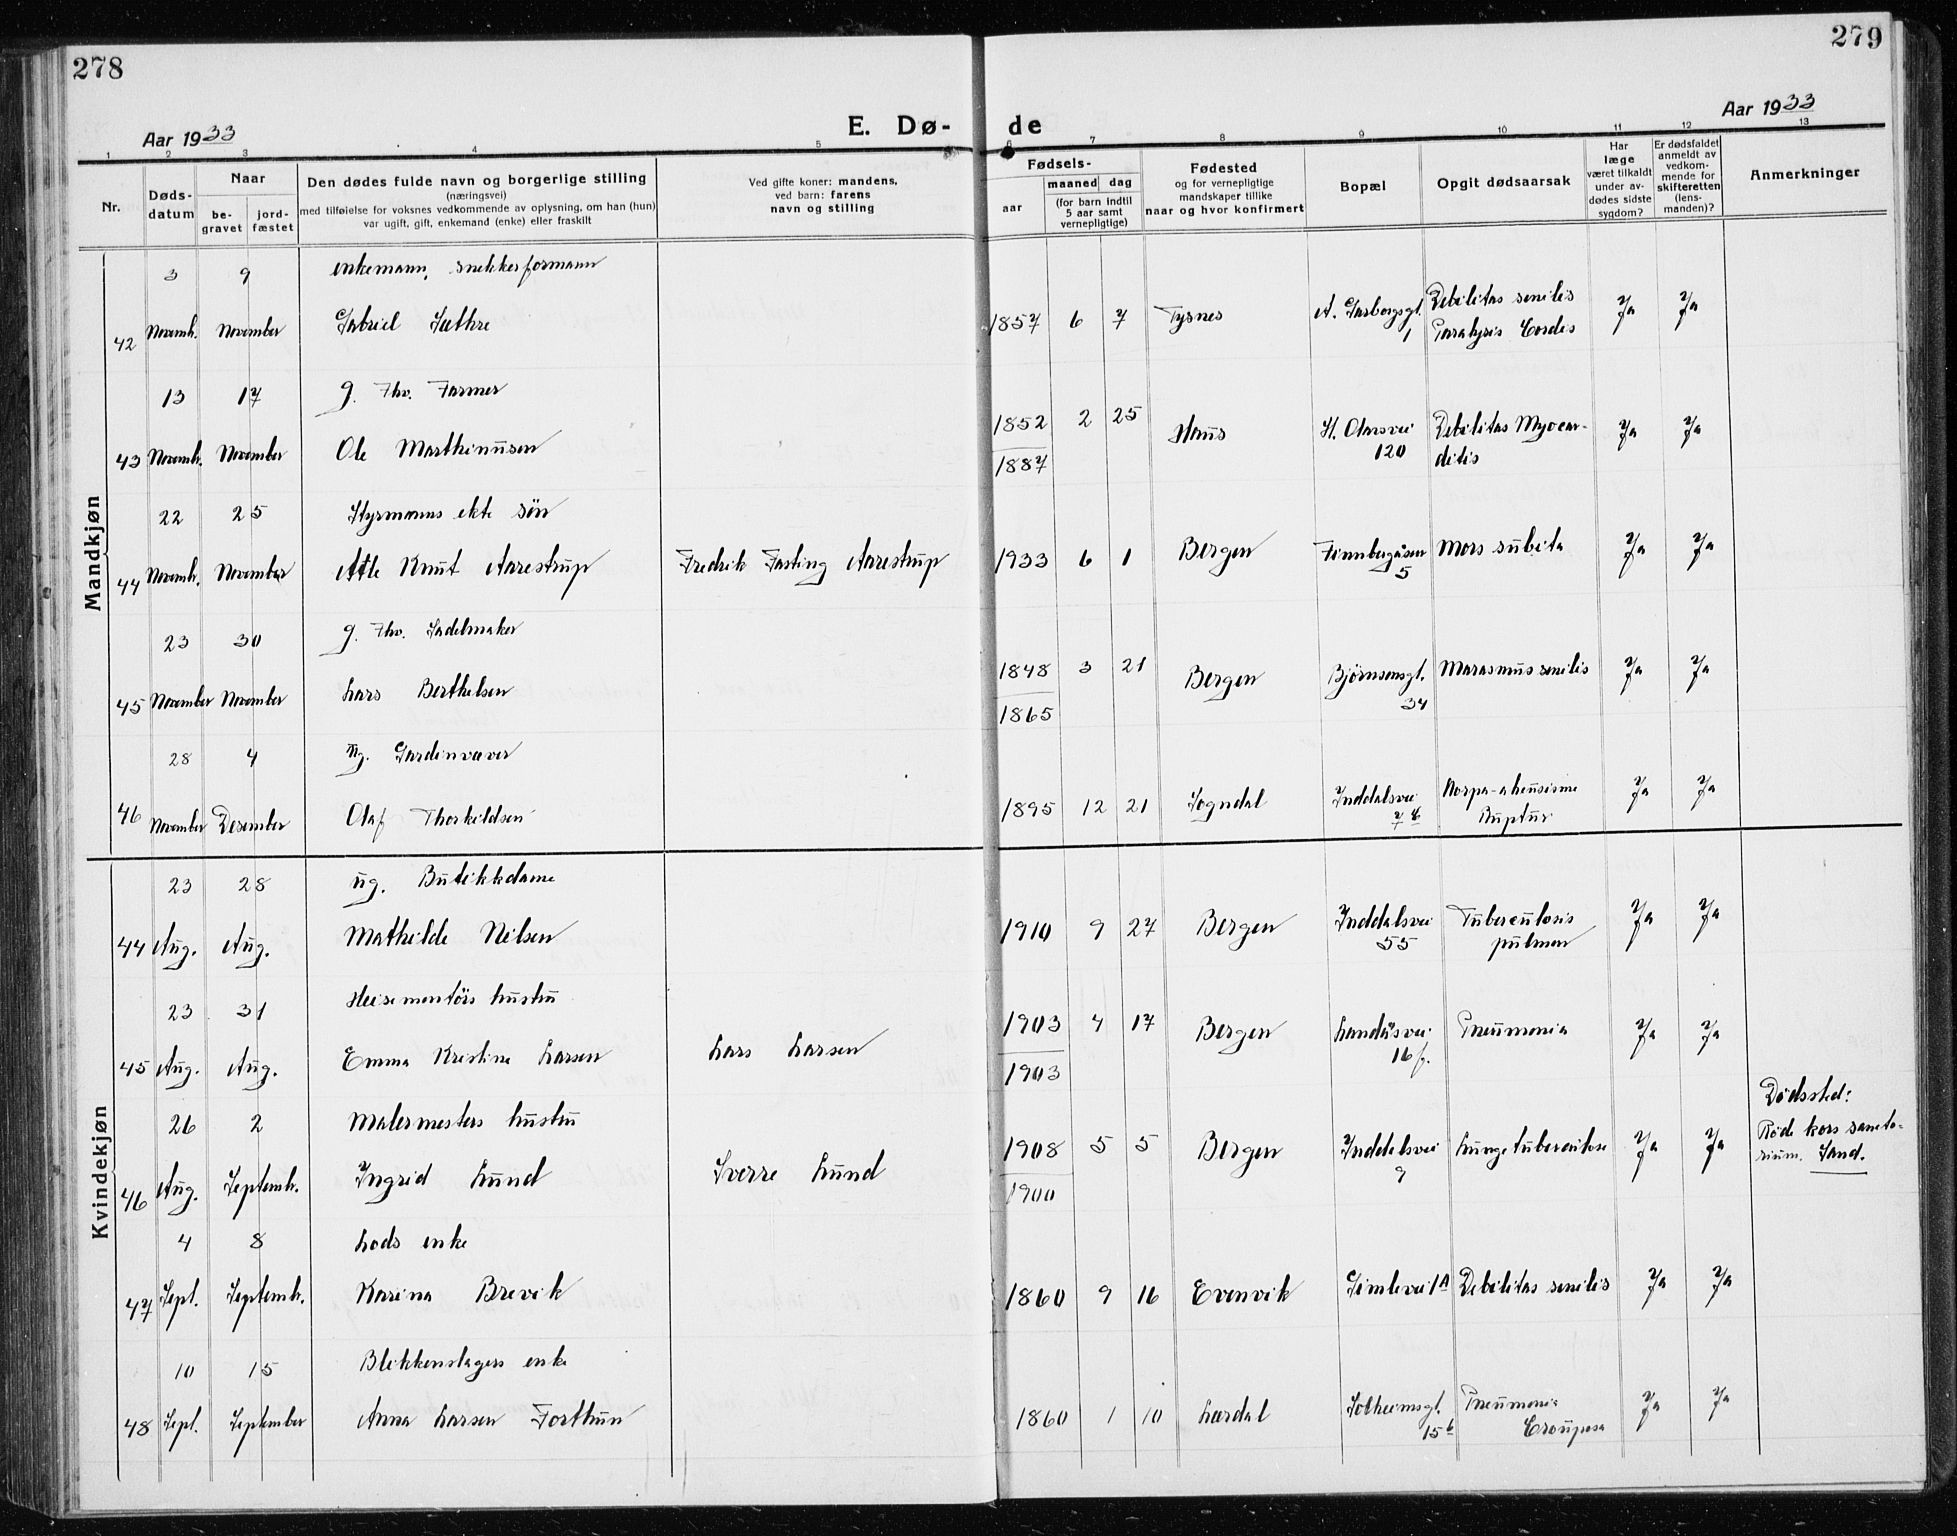 278
279
Aar 1933
E. Dø-
de
Aar 1933
1 2 3 4 5 6 7 8 9 10 11 12 13
Nr.
Døds-
datum
Naar
be-
gravet
jord-
fæstet
Den dødes fulde navn og borgerlige stilling
(næringsvei)
med tilføielse for voksnes vedkommende av oplysning, om han (hun)
var ugift, gift, enkemand (enke) eller fraskilt
Ved gifte koner: mandens,
ved barn: farens
navn og stilling
Fødsels-
aar
maaned dag
(for barn indtil
5 aar samt
vernepligtige)
Fødested
og for vernepligtige
mandskaper tillike
naar og hvor konfirmert
Bopæl
Opgit dødsaarsak
Har
læge
været tilkaldt
under av-
dødes sidste
sygdom?
Er dødsfaldet
anmeldt av
vedkom-
mende for
skifteretten
(lens-
manden)?
Anmerkninger
Mandkjøn
3 9 enkemann, snekkerformann
42 Novemb. November Gabriel Sæthre 1857 6 7 Tysnes A. Garborgsgt. 1 Debilitas senilis Ja Ja
Paralysis Cordis
13 17 g. Fhv. Farmer
43 Novemb. November Ole Marthinussen 1852 2 25 Haus St. Olavsvei 120 Debilitas Myocar- Ja Ja
1887 ditis
22 25 Styrmanns ekte søn
44 Novemb. November Atle Knut Aarestrup Fredrik Fasting Aarestrup 1933 6 1 Bergen Finnbergåsen 5 Mors subita Ja Ja
23 30 g. Fhv. Sadelmaker
45 November November Lars Berthelsen 1848 3 21 Bergen Bjørnsonsgt. 34 Marasmus senilis Ja Ja
1865
28 4 ug. Gardinvæver
46 November Desember Olaf Thorkildsen 1895 12 21 Sogndal Inddalsvei Ja Ja
Ruptur
Kvindekjøn
23 28 ug. Butikkdame
44 Aug. Aug. Mathilde Nilsen 1910 9 27 Bergen Inddalsvei 55 Tuberculosis Ja Ja
pulmon
23 31 Heisemontørs hustru
45 Aug. Aug. Emma Kristine Larsen Lars Larsen 1903 4 17 Bergen Landåsvei 16 f. Pneumonia Ja Ja
1903
26 2 Malermesters hustru
46 Aug. Septemb. Ingrid Lund Sverre Lund 1908 5 5 Bergen Inddalsvei 9 Lungetuberculose Ja Ja Dødssted:
1900 Røde kors sanato-
rium. Sand.
4 8 Lods enke
47 Sept. Septemb. Karina Brevik 1860 9 16 Evenvik Gimlevei 1A Debilitas senilis Ja Ja
10 15 Blikkenslagers enke
48 Sept. September Anna Larsen Forthun 1860 1 10 Lærdal Solheimsgt. 15b Pneumonia Ja Ja
Crouposa